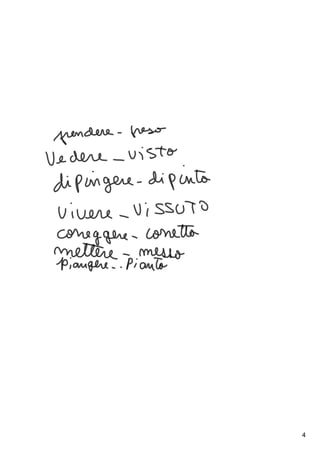 prendere - preso
Vedere - visto
dipingere - dipinto
vivere - ViSSUTO
correggere - corretto
mettere - messo
piangere - . Pianto
4